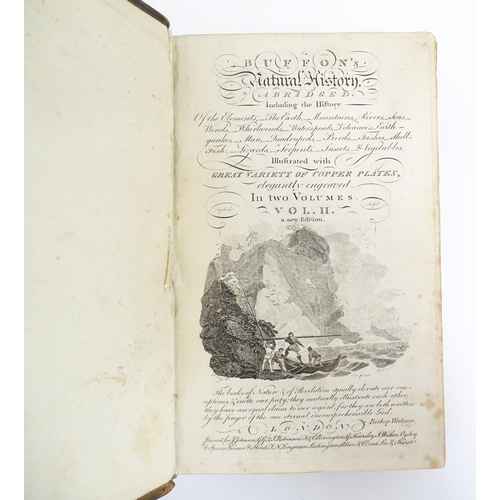 BUFFON's
Natural History,
ABRIDGED.
Including the History
Of the Elements, The Earth, Mountains, Rivers, Seas,
Winds, Whirlwinds, Waterspouts, Volcanoes, Earth-
quakes, Man, Quadrupeds, Birds, Fishes, Shell-
Fish, Lizards, Serpents, Insects, & Vegetables.
Illustrated with
GREAT VARIETY OF COPPER PLATES,
elegantly engraved.
In two VOLUMES.
VOL. II.
a new Edition.
The books of Nature & of Revelation equally elevate our con-
ceptions, & incite our piety; they mutually illustrate each other,
they have an equal claim to our regard, for they are both written
by the finger of the one eternal incomprehensible God.
Bishop Watson.
LONDON:
Printed for J. Johnson, G. G. & J. Robinson, F. & C. Rivington, G. Kearsley, J. Walker, Ogilvy
& Hurst, T. N. Longman, Lackington, Allen & Co. and Lee & Hurst.